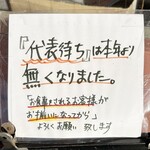 『代表待ち』は本年より
無くなりました。
「お食事をされるお客様が
お揃いになってから」
よろしくお願い致します